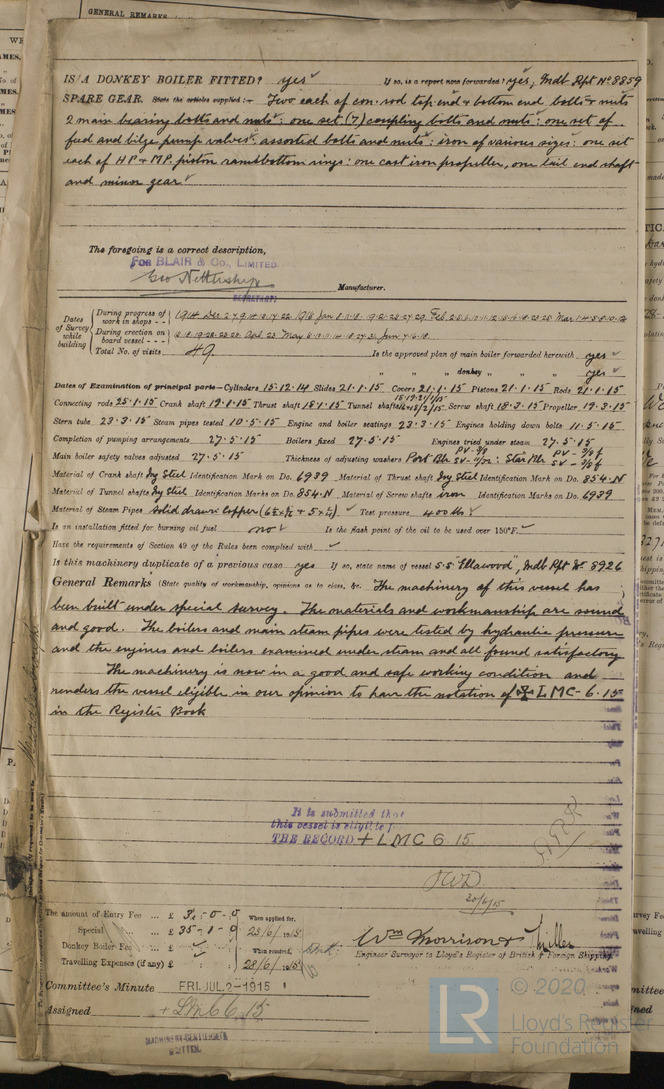 GENERAL REMARKS
IS A DONKEY BOILER FITTED? yes If so, is a report now forwarded? yes, Mdb Rpt No 8859
SPARE GEAR. State the articles supplied:— Two each of con. rod top end & bottom end bolts & nuts
2 main bearing bolts and nuts: one set (7) coupling bolts and nuts: one set of
feed and bilge pump valves, assorted bolts and nuts: iron of various sizes: one set
each of HP & MP piston ramsbottom rings: one cast iron propeller, one tail end shaft
and minor gear
The foregoing is a correct description,
FOR BLAIR & Co., LIMITED
Geo Nettership
SECRETARY
Manufacturer.
Dates of Survey while building
During progress of work in shops - - 1914 Dec 2.7.9.14.
During erection on board vessel - - - Apl 23. May Jun
Total No. of visits 49.
Is the approved plan of main boiler forwarded herewith yes
" " " donkey " " " yes
Dates of Examination of principal parts—Cylinders 15.12.14 Slides 21.1.15 Covers 21.1.15 Pistons 21.1.15 Rods 21.1.15
Connecting rods 25.1.15 Crank shaft 19.1.15 Thrust shaft 18.1.15 Tunnel shafts Screw shaft 18.3.15 Propeller 19.3.15
Stern tube 23.3.15 Steam pipes tested 10.5.15 Engine and boiler seatings 23.3.15 Engines holding down bolts 11.5.15
Completion of pumping arrangements 27.5.15 Boilers fixed 27.5.15 Engines tried under steam 27.5.15
Main boiler safety valves adjusted 27.5.15 Thickness of adjusting washers Port Blr PV SV Star Blr PV SV
Material of Crank shaft Ing Steel Identification Mark on Do. 6939 Material of Thrust shaft Ing Steel Identification Mark on Do. 854.N
Material of Tunnel shafts Ing Steel Identification Marks on Do. 854.N Material of Screw shafts iron Identification Marks on Do. 6939
Material of Steam Pipes solid drawn copper Test pressure 400 lbs
Is an installation fitted for burning oil fuel no Is the flash point of the oil to be used over 150°F.
Have the requirements of Section 49 of the Rules been complied with
Is this machinery duplicate of a previous case yes If so, state name of vessel S.S. "Ellawood", Mdb Rpt No 8926
General Remarks (State quality of workmanship, opinions as to class, &c. The machinery of this vessel has
been built under special survey. The materials and workmanship are sound
and good. The boilers and main steam pipes were tested by hydraulic pressure
and the engines and boilers examined under steam and all found satisfactory
The machinery is now in a good and safe working condition and
renders the vessel eligible in our opinion to have the notation of ✠ LMC - 6.15
in the Register Book
It is submitted that
this vessel is eligible for
THE RECORD + LMC 6.15.
JWD
20/6/15
The amount of Entry Fee ... £ 3.-0-0 When applied for,
Special ... £ 35-1-0 23/6/1915
Donkey Boiler Fee ... £ When received,
Travelling Expenses (if any) £ 28/6/1915
Wm Morrison & Miller
Engineer Surveyor to Lloyd's Register of British & Foreign Shipping.
Committee's Minute FRI. JUL. 2-1915
Assigned + LMC 6.15
MACHINERY CERTIFICATE
WRITTEN.
LR
© 2020
Lloyd's Register
Foundation